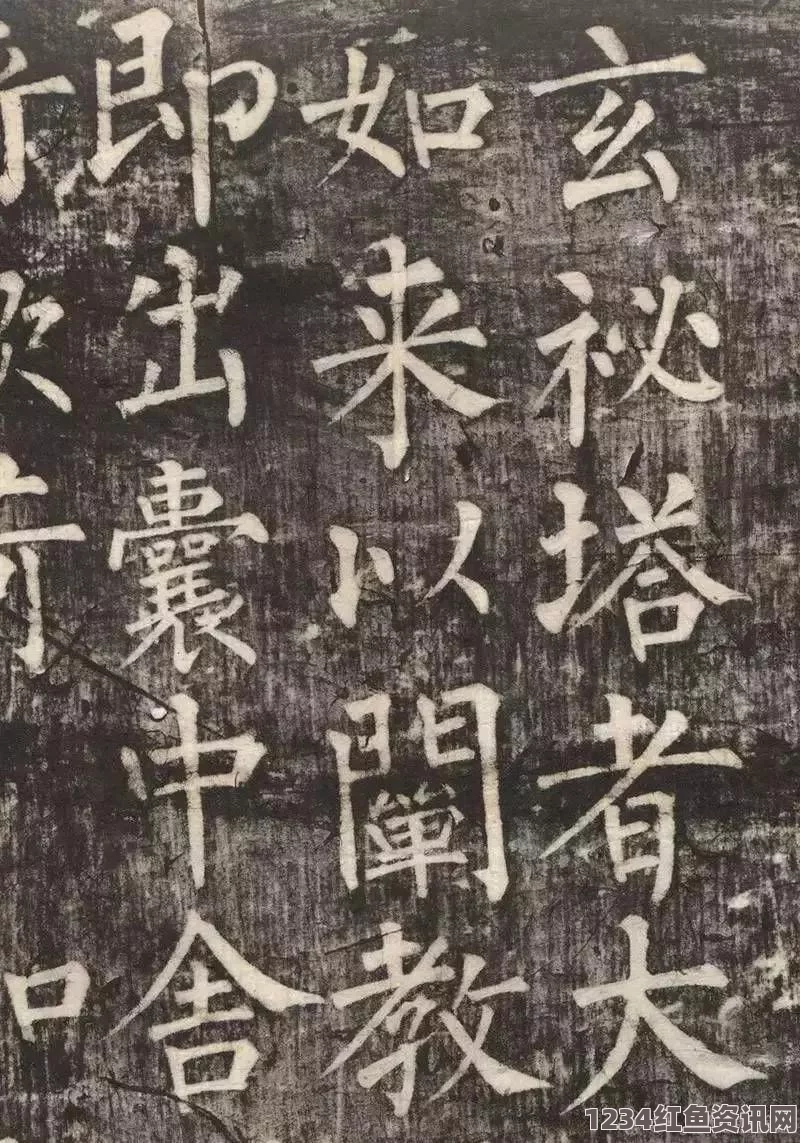 玄祕塔者大
如来以闡教
即出囊中舍
1234红鱼资讯网